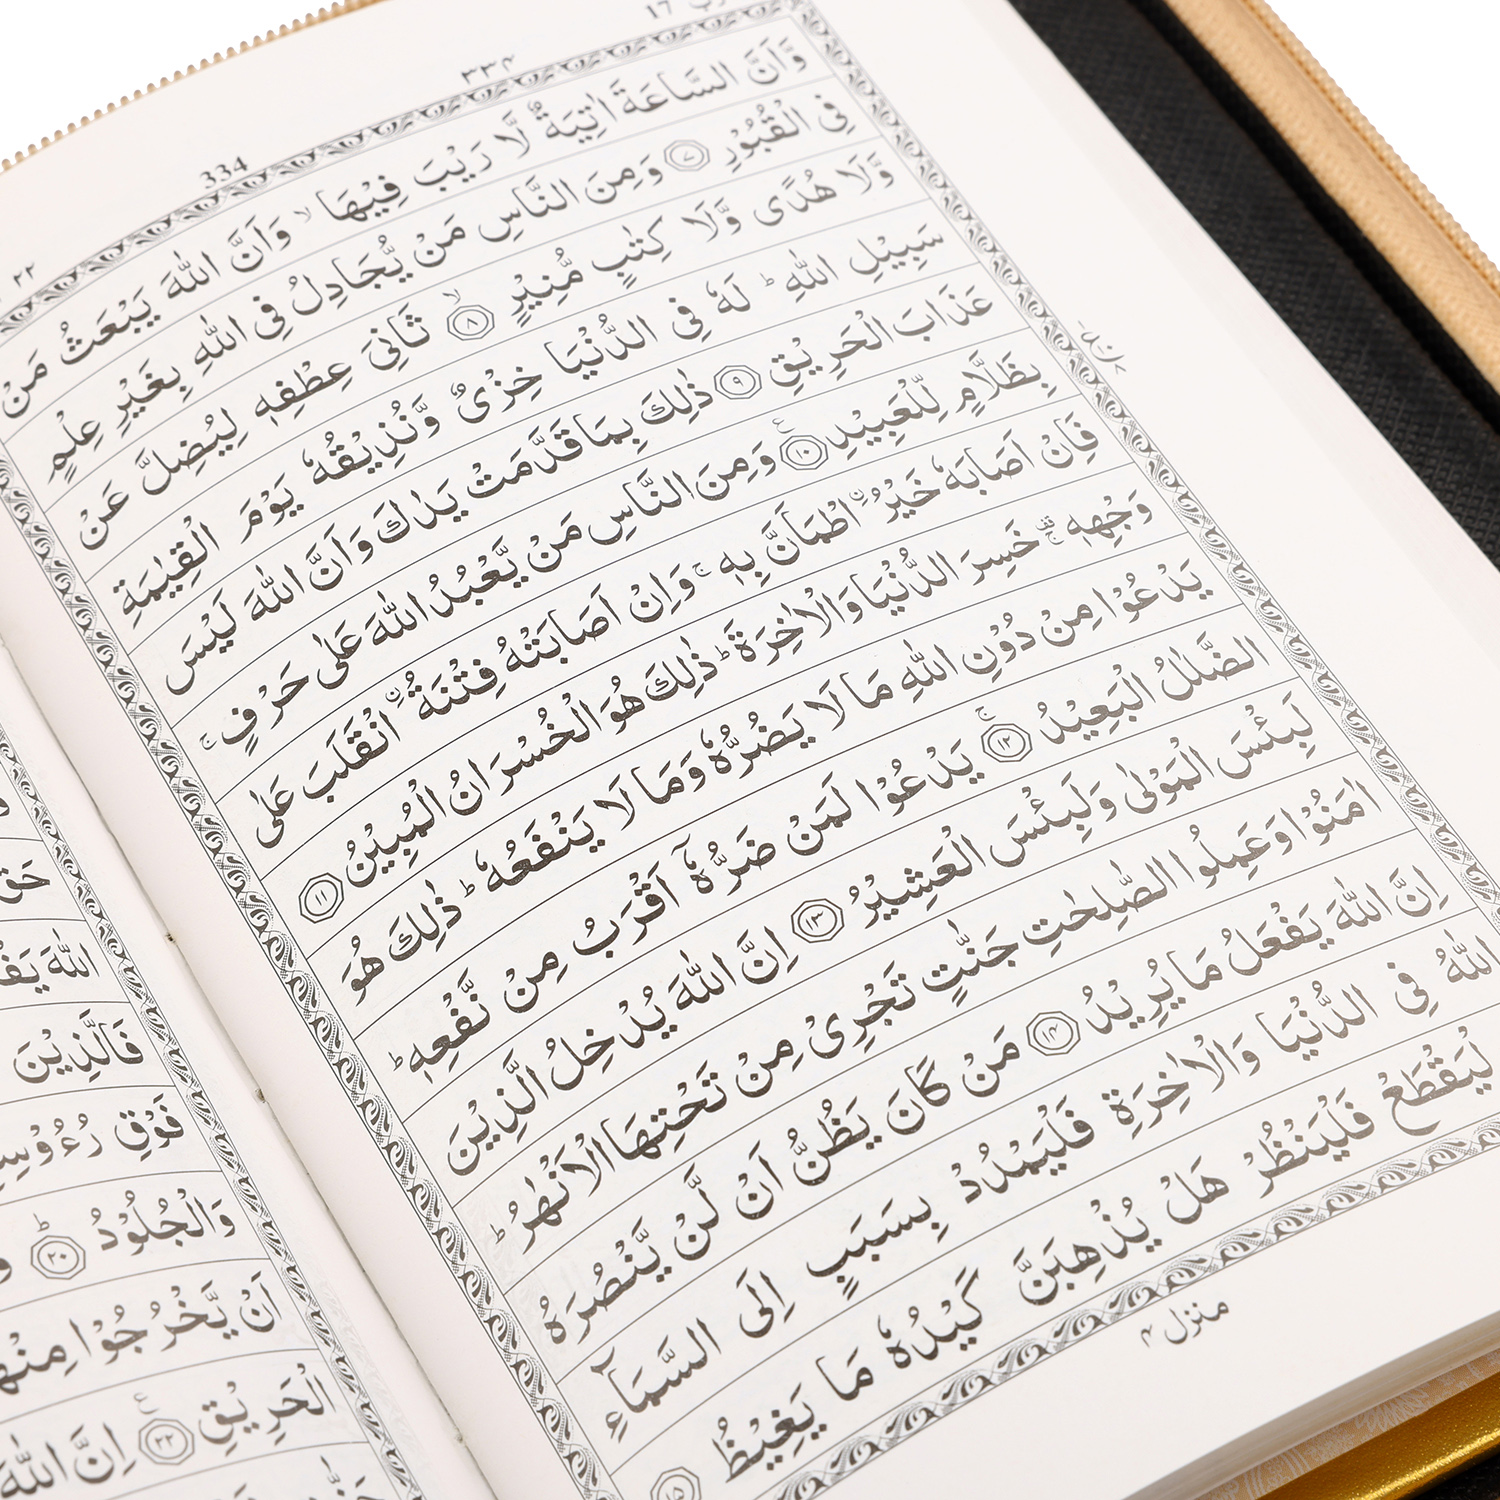 ٣٣٤
17
334
وَّاَنَّ السَّاعَةَ اٰتِيَةٌ لَّا رَيْبَ فِيْهَا ۙ وَاَنَّ اللّٰهَ يَبْعَثُ مَنْ
فِى الْقُبُوْرِ ٧ وَمِنَ النَّاسِ مَنْ يُّجَادِلُ فِى اللّٰهِ بِغَيْرِ عِلْمٍ
وَّلَا هُدًى وَّلَا كِتٰبٍ مُّنِيْرٍ ۙ ٨ ثَانِىَ عِطْفِهٖ لِيُضِلَّ عَنْ
سَبِيْلِ اللّٰهِ ؕ لَهٗ فِى الدُّنْيَا خِزْىٌ وَّنُذِيْقُهٗ يَوْمَ الْقِيٰمَةِ
عَذَابَ الْحَرِيْقِ ٩ ذٰلِكَ بِمَا قَدَّمَتْ يَدٰكَ وَاَنَّ اللّٰهَ لَيْسَ
بِظَلَّامٍ لِّلْعَبِيْدِ ١٠ وَمِنَ النَّاسِ مَنْ يَّعْبُدُ اللّٰهَ عَلٰى حَرْفٍ ۚ
فَاِنْ اَصَابَهٗ خَيْرُ ۨاطْمَاَنَّ بِهٖ ۚ وَاِنْ اَصَابَتْهُ فِتْنَةُ ۨانْقَلَبَ عَلٰى
وَجْهِهٖ خَسِرَ الدُّنْيَا وَالْاٰخِرَةَ ؕ ذٰلِكَ هُوَ الْخُسْرَانُ الْمُبِيْنُ ١١
يَدْعُوْا مِنْ دُوْنِ اللّٰهِ مَا لَا يَضُرُّهٗ وَمَا لَا يَنْفَعُهٗ ؕ ذٰلِكَ هُوَ
الضَّلٰلُ الْبَعِيْدُ ۚ ١٢ يَدْعُوْا لَمَنْ ضَرُّهٗۤ اَقْرَبُ مِنْ نَّفْعِهٖ ؕ
لَبِئْسَ الْمَوْلٰى وَلَبِئْسَ الْعَشِيْرُ ١٣ اِنَّ اللّٰهَ يُدْخِلُ الَّذِيْنَ
اٰمَنُوْا وَعَمِلُوا الصّٰلِحٰتِ جَنّٰتٍ تَجْرِىْ مِنْ تَحْتِهَا الْاَنْهٰرُ ؕ
اِنَّ اللّٰهَ يَفْعَلُ مَا يُرِيْدُ ١٤ مَنْ كَانَ يَظُنُّ اَنْ لَّنْ يَّنْصُرَهُ
اللّٰهُ فِى الدُّنْيَا وَالْاٰخِرَةِ فَلْيَمْدُدْ بِسَبَبٍ اِلَى السَّمَآءِ
لْيَقْطَعْ فَلْيَنْظُرْ هَلْ يُذْهِبَنَّ كَيْدُهٗ مَا يَغِيْظُ ١٥
منزل ٤
اللّٰهَ
فَالَّذِيْنَ
فَوْقِ
وَالْجُلُوْدُ ؕ ٢٠
اَنْ يَّخْرُجُوْا
الْحَرِيْقِ ٢٢ اِنَّ اللّٰهَ